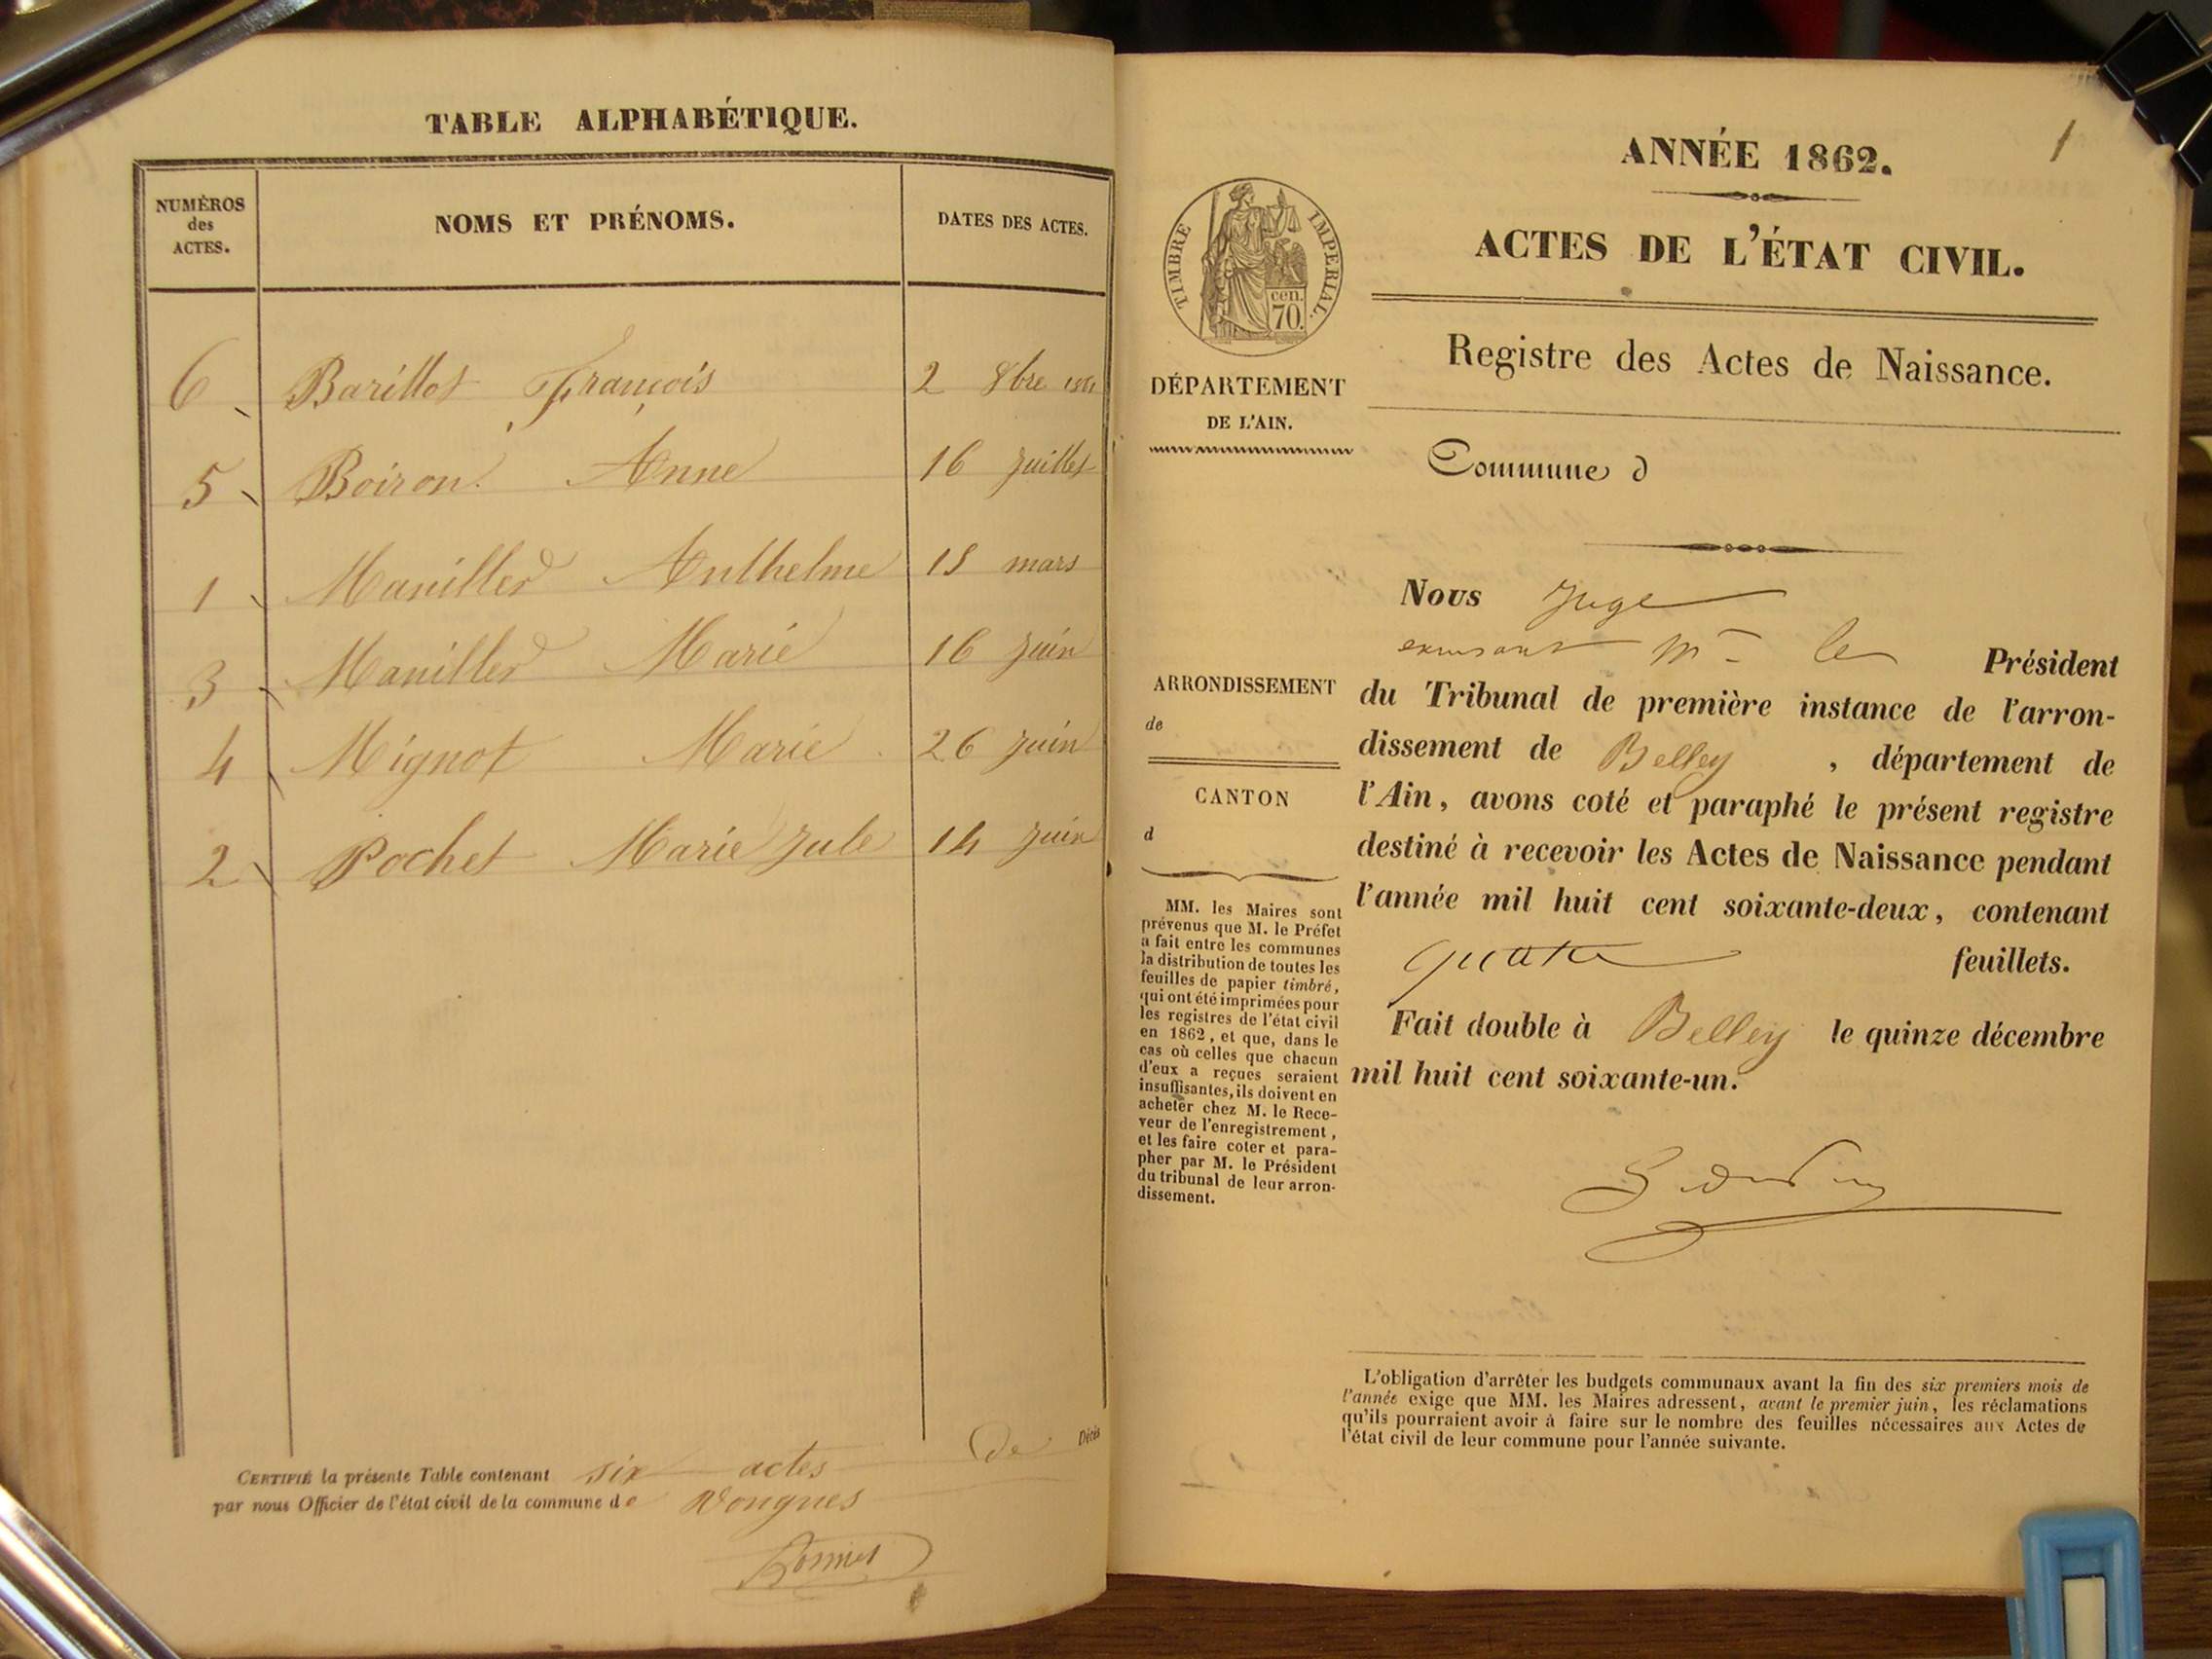 TABLE ALPHABÉTIQUE.
NUMÉROS des ACTES. NOMS ET PRÉNOMS. DATES DES ACTES.
6 Barillot François 2 8bre 1861
5 Boiron Anne 16 juillet
1 Maniller Anthelme 18 mars
3 Maniller Marie 16 juin
4 Mignot Marie 26 juin
2 Pochet Marie Jule 14 juin
CERTIFIÉ la présente Table contenant six actes de Décès
par nous Officier de l'état civil de la commune de Vongnes
Bonnet
1
ANNÉE 1862.
ACTES DE L'ÉTAT CIVIL.
TIMBRE IMPERIAL.
cen.
70.
Registre des Actes de Naissance.
DÉPARTEMENT
DE L'AIN.
Commune d
ARRONDISSEMENT
de
CANTON
d
MM. les Maires sont
prévenus que M. le Préfet
a fait entre les communes
la distribution de toutes les
feuilles de papier timbré,
qui ont été imprimées pour
les registres de l'état civil
en 1862, et que, dans le
cas où celles que chacun
d'eux a reçues seraient
insuffisantes, ils doivent en
acheter chez M. le Rece-
veur de l'enregistrement,
et les faire coter et para-
pher par M. le Président
du tribunal de leur arron-
dissement.
Nous Juge
excusant Mr le Président
du Tribunal de première instance de l'arron-
dissement de Belley, département de
l'Ain, avons coté et paraphé le présent registre
destiné à recevoir les Actes de Naissance pendant
l'année mil huit cent soixante-deux, contenant
quatre feuillets.
Fait double à Belley le quinze décembre
mil huit cent soixante-un.
L'obligation d'arrêter les budgets communaux avant la fin des six premiers mois de
l'année exige que MM. les Maires adressent, avant le premier juin, les réclamations
qu'ils pourraient avoir à faire sur le nombre des feuilles nécessaires aux Actes de
l'état civil de leur commune pour l'année suivante.